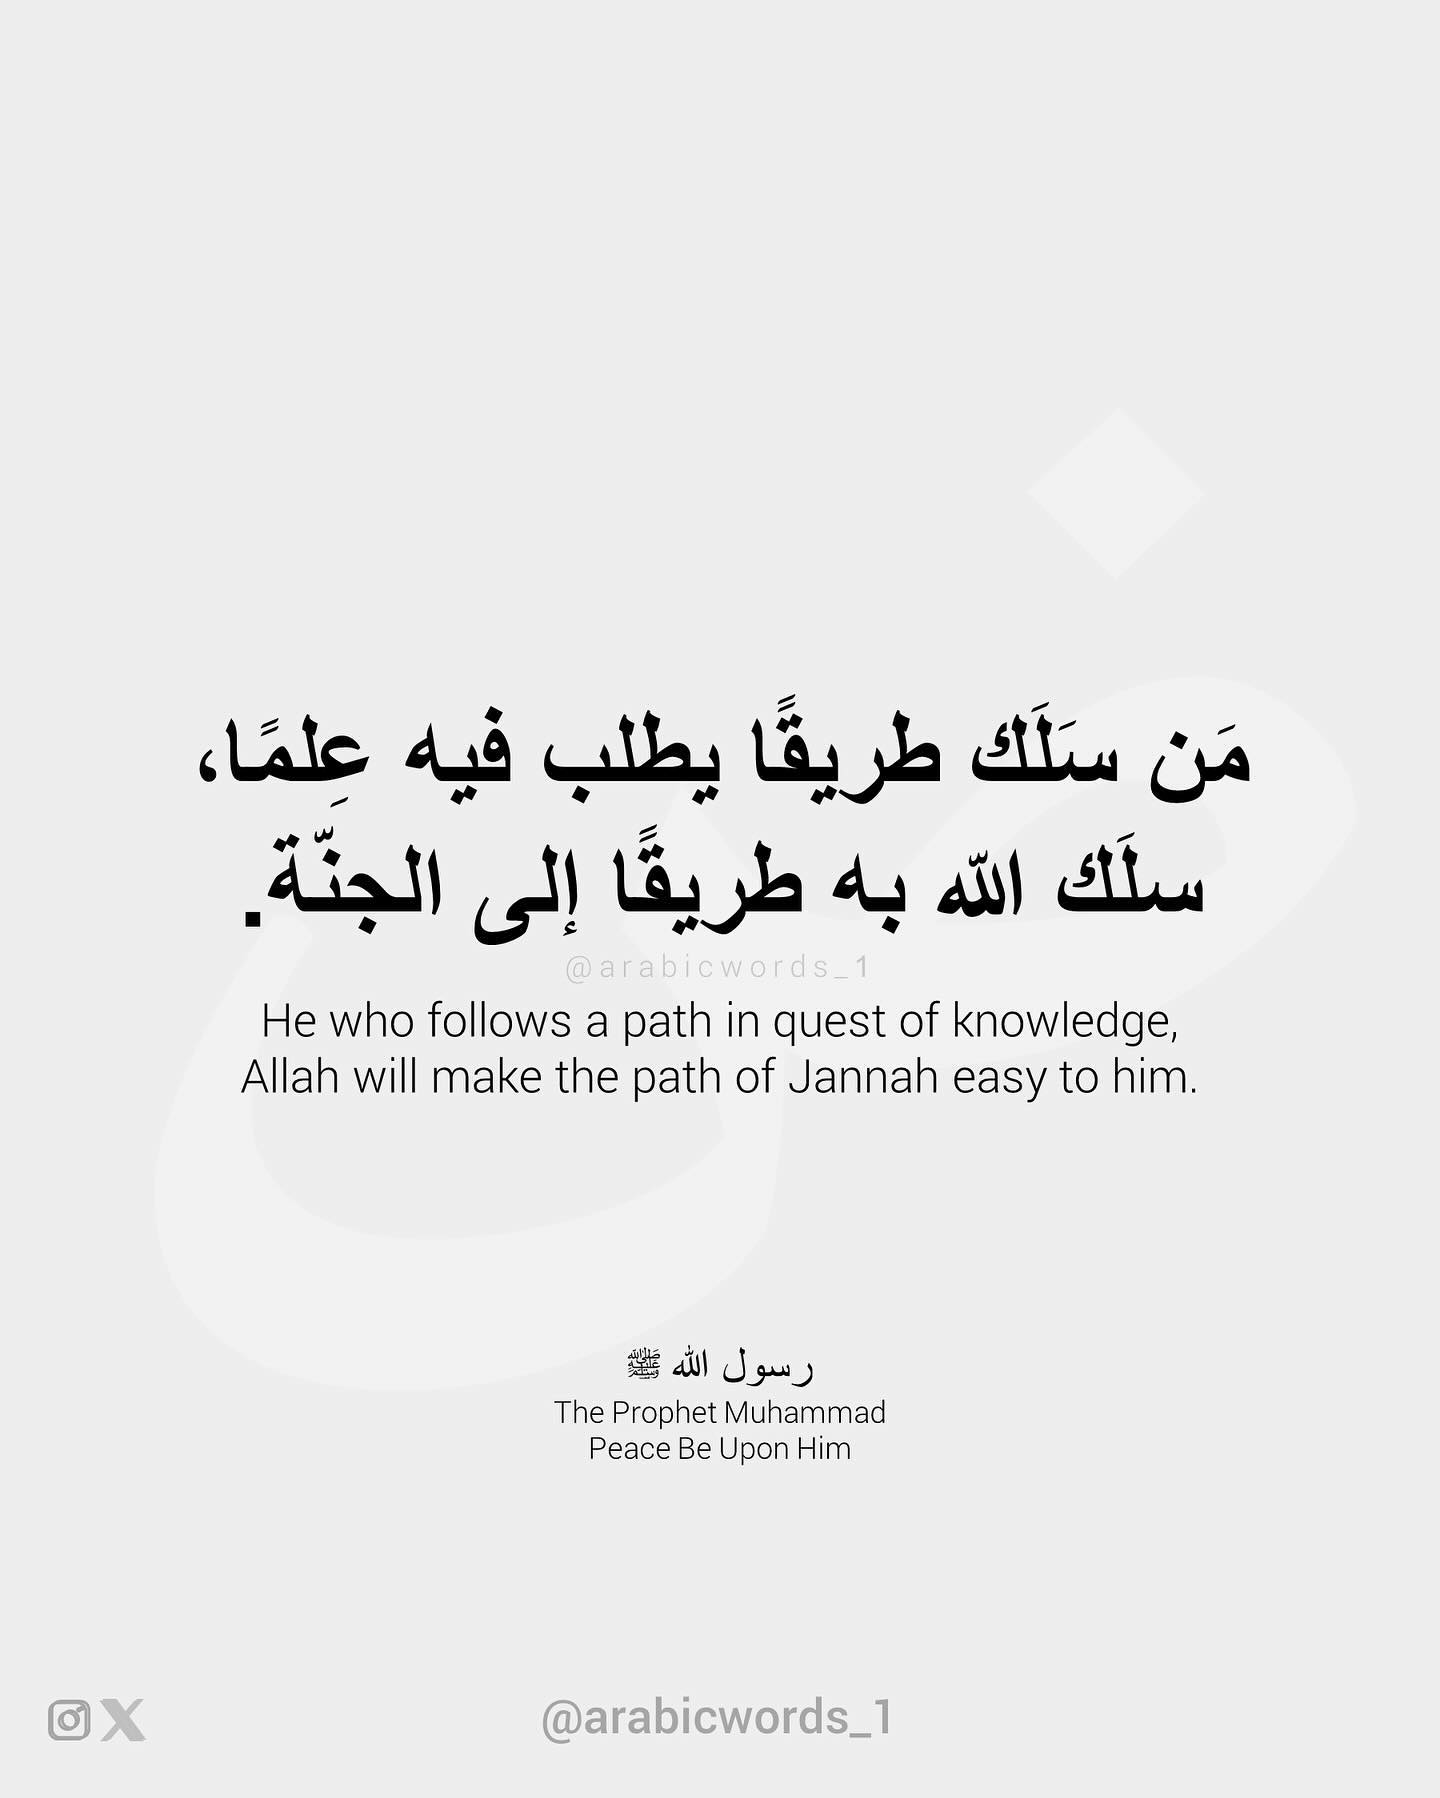 مَن سَلَك طريقًا يطلب فيه عِلمًا،
سلَك الله به طريقًا إلى الجنّة.
@arabicwords_1
He who follows a path in quest of knowledge,
Allah will make the path of Jannah easy to him.
رسول الله ﷺ
The Prophet Muhammad
Peace Be Upon Him
@arabicwords_1